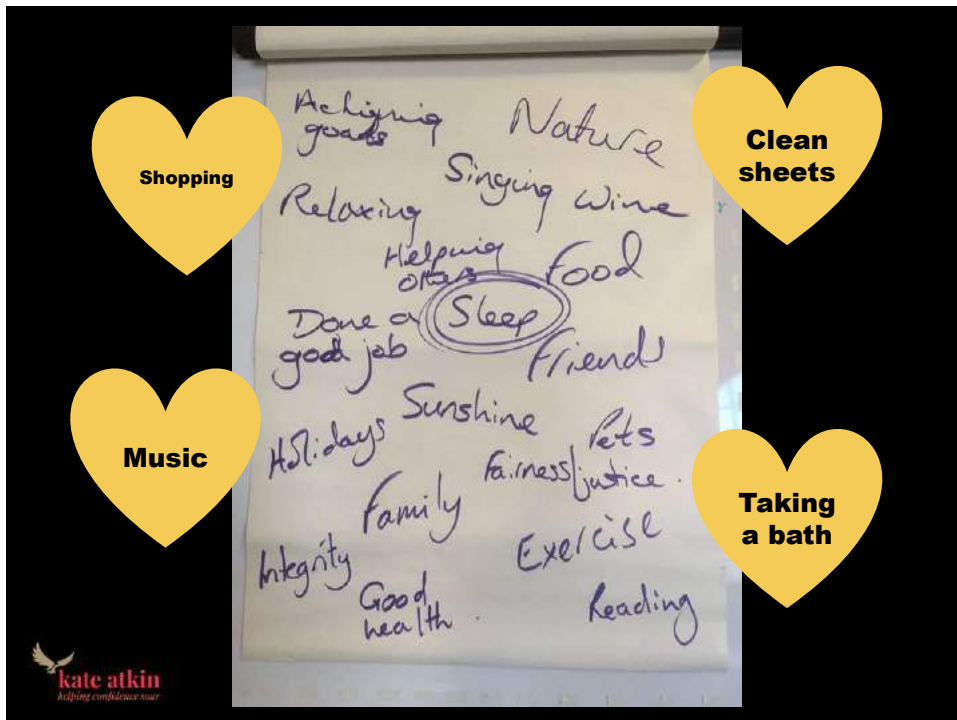 Shopping
Clean
sheets
Music
Taking
a bath
Achieving
goals
Nature
Singing
Wine
Relaxing
Helping
others
Food
Sleep
Done a
good job
Friends
Sunshine
Holidays
Pets
Fairness/justice.
Family
Exercise
Integrity
Good
health.
Reading
kate atkin
helping confidence soar